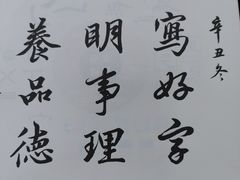 辛丑冬
寫好字
明事理
養品德